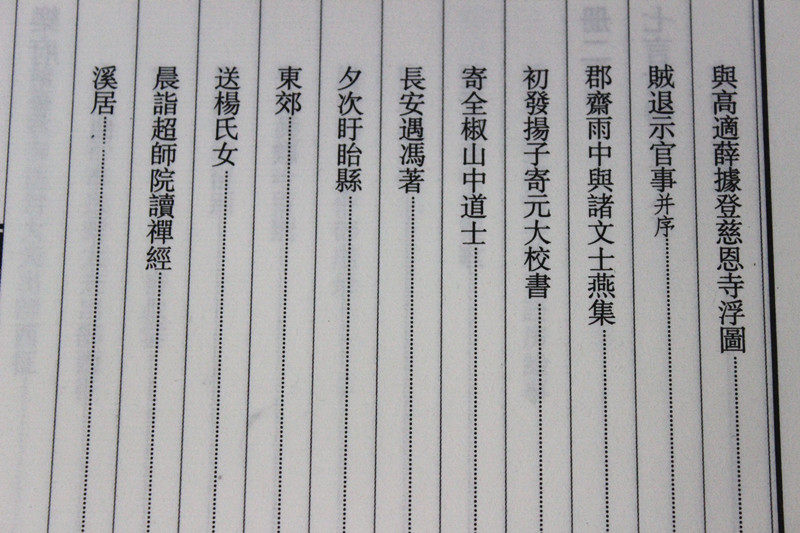 與高適薛據登慈恩寺浮圖
賊退示官事并序
郡齋雨中與諸文士燕集
初發揚子寄元大校書
寄全椒山中道士
長安遇馮著
夕次盱眙縣
東郊
送楊氏女
晨詣超師院讀禪經
溪居